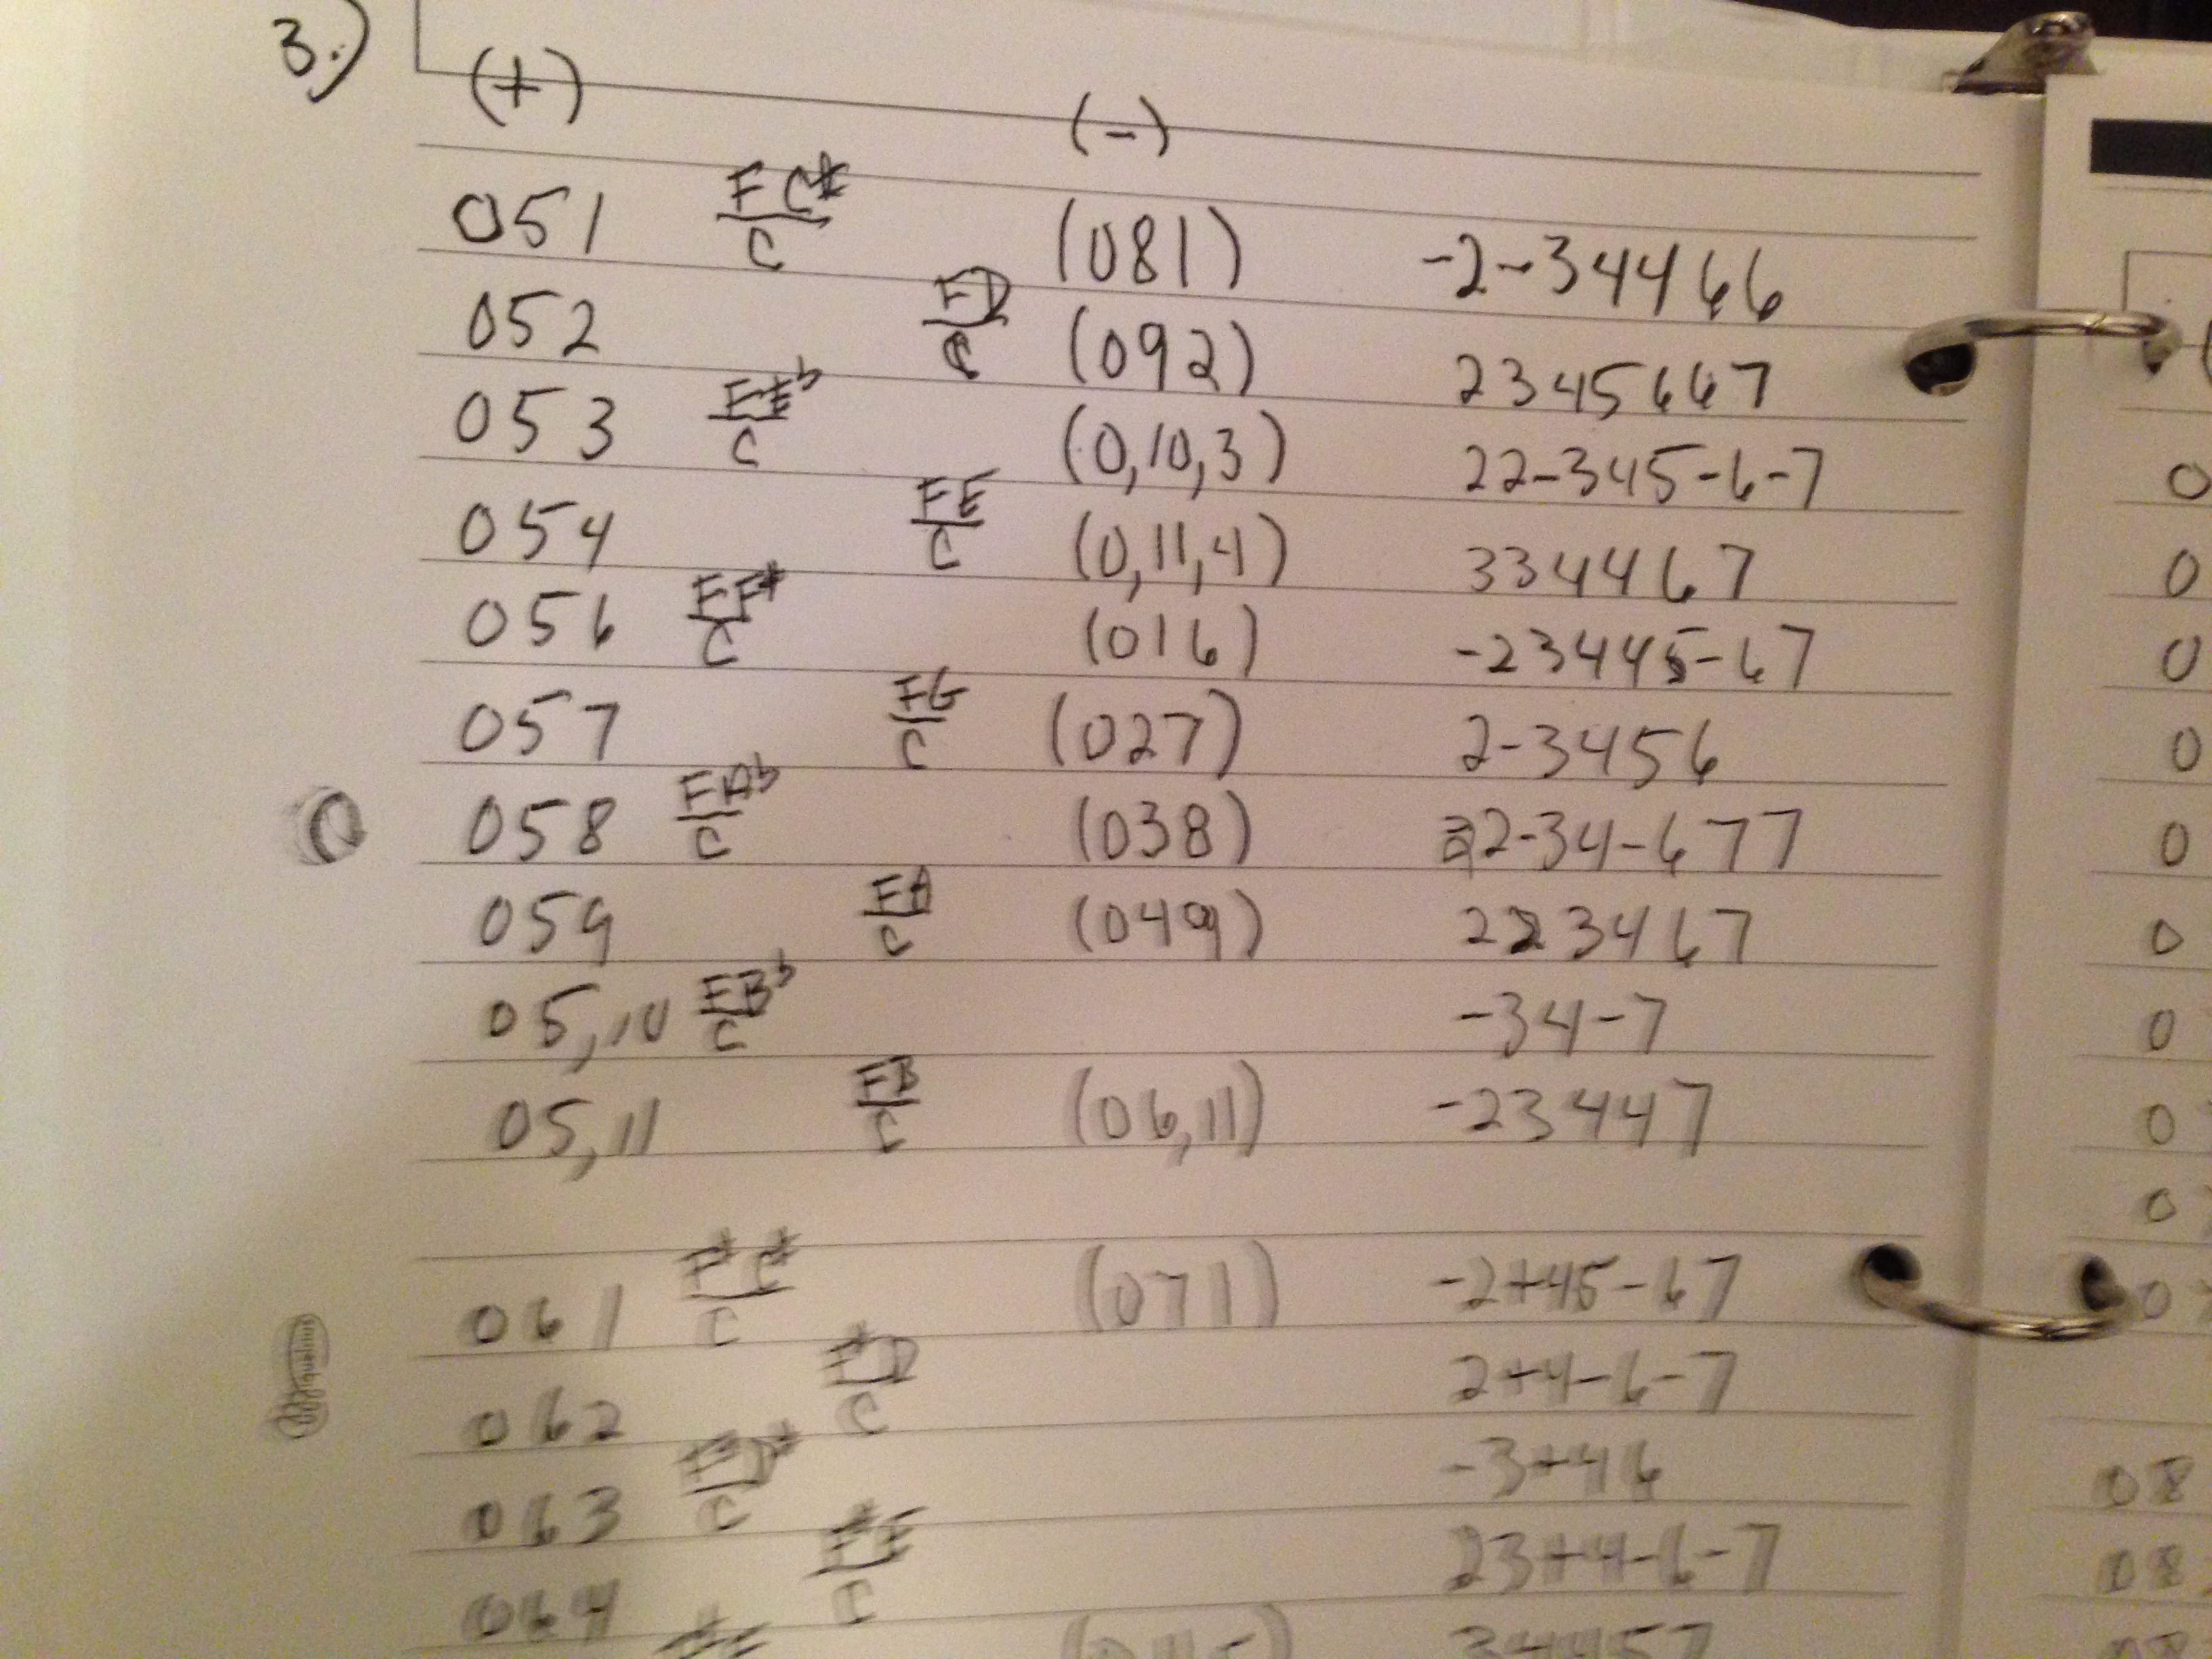 3.)
(+) (-)
051 FC#/C (081) -2--34466
052 FD/C (092) 2345667
053 FEb/C (0,10,3) 22-345-6-7
054 FE/C (0,11,4) 334467
056 FF#/C (016) -23445-67
057 FG/C (027) 2-3456
058 FAb/C (038) 22-34-677
059 FA/C (049) 223467
05,10 FBb/C -34-7
05,11 FB/C (06,11) -23447
061 F#C#/C (071) -2+45-67
062 F#D/C 2+4-6-7
063 F#D#/C -3+46
064 F#E/C 23+4-6-7
34457
0
0
0
0
0
0
0
0
0
0
08
08